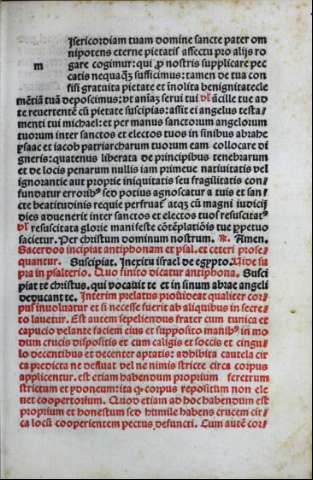 Isericordiam tuam domine sancte pater om
nipotens eterne pietatis affectu pro alijs ro
gare cogimur: qui ꝓ nostris supplicare pec
m
catis nequaq̃ sufficimus: tamen de tua con
fisi gratuita pietate et inolita benignitate cle
mẽtiã tuã deposcimus: vt aniaȝ serui tui vł ancille tue ad
te reuertentẽ cũ pietate suscipias: assit ei angelus testa
menti tui michael: et per manus sanctorum angelorum
tuorum inter sanctos et electos tuos in sinibus abrahe
ysaac et iacob patriarcharum tuorum eam collocare di
gneris: quatenus liberata de principibus tenebrarum
et de locis penarum nullis iam primeue natiuitatis vel
ignorantie aut proprie iniquitatis seu fragilitatis con
fundatur erroribꝰ sed potius agnoscatur a tuis et san
cte beatitudinis requie perfruatur atqȝ cũ magni iudicij
dies aduenerit inter sanctos et electos tuos resuscitatꝰ
vł resuscitata glorie manifeste cõtẽplatiõis tue ꝑpetuo
sacietur. Per christum dominum nostrum. ℟. Amen.
Sacerdos incipiat antiphonam et psal. et ceteri prose
quantur. Suscipiat. In exitu israel de egypto. Vide su
pra in psalterio. Quo finito dicatur antiphona. Susci
piat te christus, qui vocauit te et in sinum abrae angeli
deducant te. Interim prelatus prouideat qualiter cor
pus inuoluatur et si necesse fuerit ab aliquibus in secre
to lauetur. Est autem sepeliendus frater cum tunica et
capucio velante faciem eius et supposito manibꝰ in mo
dum crucis dispositis et cum caligis et soccis et cingu
lo decentibus et decenter aptatis: adhibita cautela cir
ca predicta ne desuat vel ne nimis stricte circa corpus
applicentur. est etiam habendum proprium feretrum
strictum et ydoneum ita ꝙ corpus repositum non ele
net coopertorium. Quod etiam ad hoc habendum est
proprium et honestum sed humile habens crucem cir
ca locũ cooperientem pectus defuncti. Cum autẽ cor